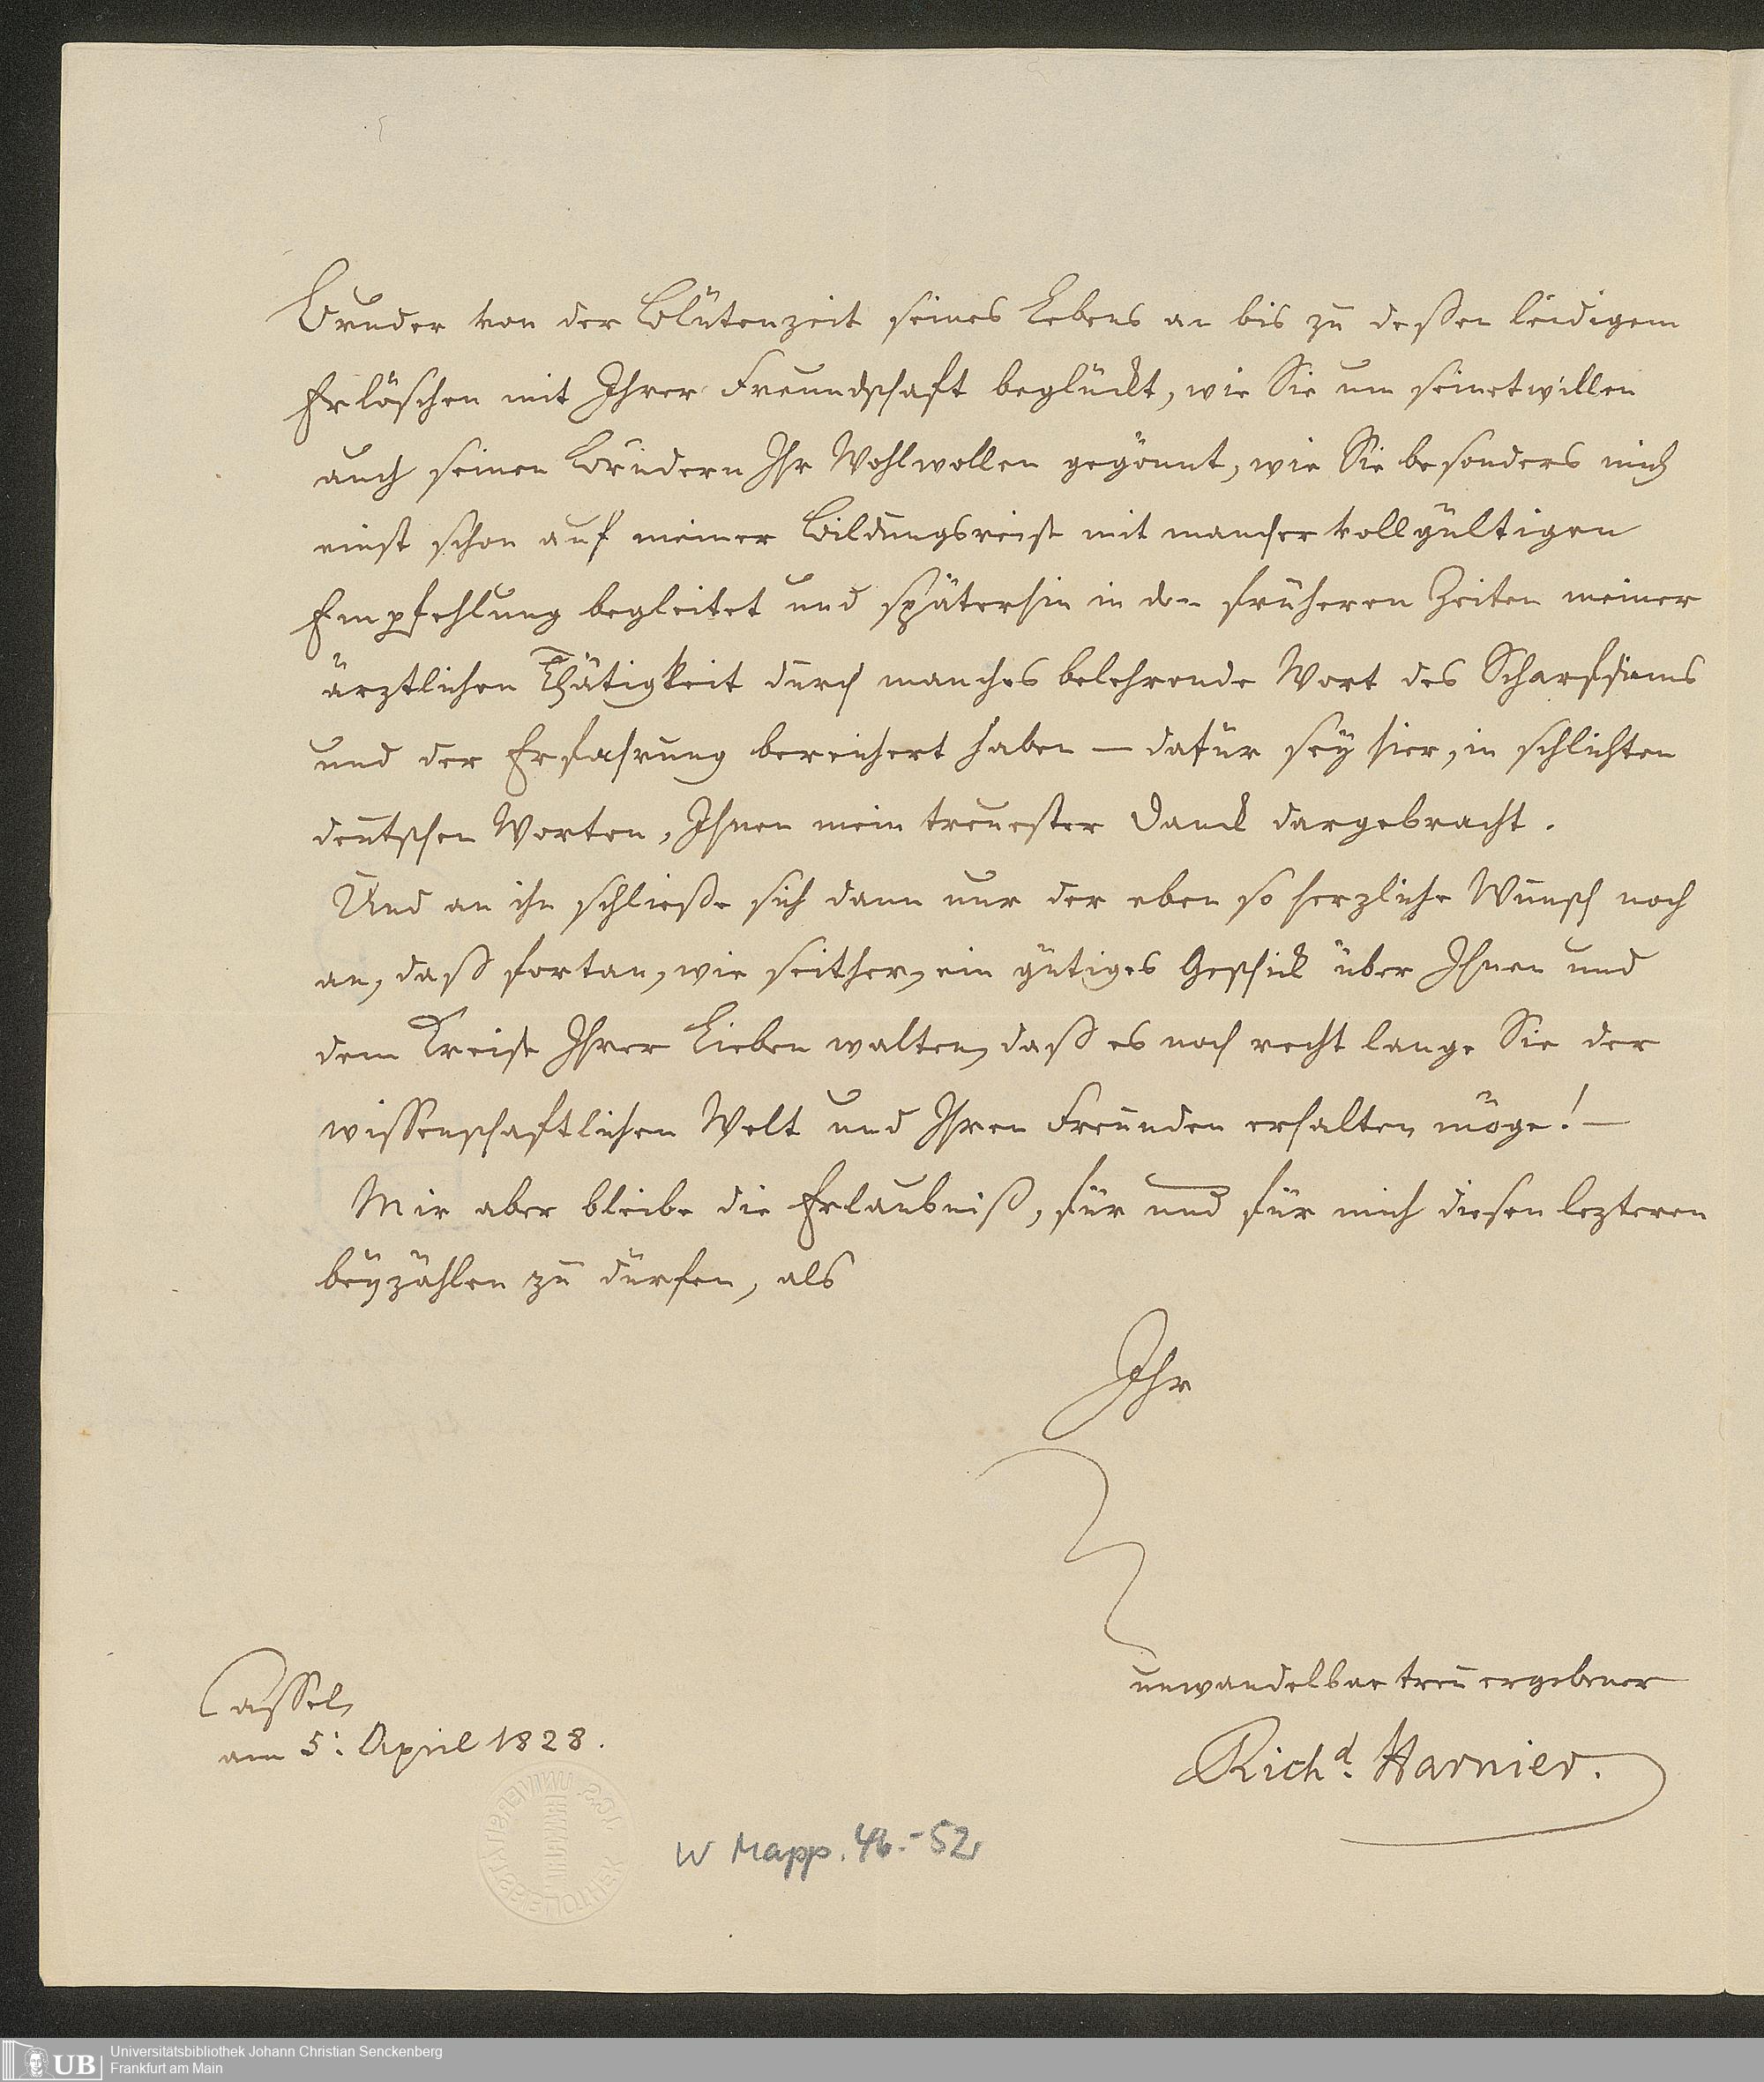 Bruder von der Blütenzeit seines Lebens an bis zu deßen leidigem
Erlöschen mit Ihrer Freundschaft beglückt, wie Sie um seinetwillen
auch seinen Brüdern Ihr Wohlwollen gegönnt, wie Sie besonders mich
einst schon auf meiner Bildungsreise mit mancher vollgültigen
Empfehlung begleitet und späterhin in den früheren Zeiten meiner
ärztlichen Thätigkeit durch manches belehrende Wort des Scharfsinns
und der Erfahrung bereichert haben — dafür sey hier, in schlichten
deutschen Worten, Ihnen mein treuester Dank dargebracht.
Und an ihn schließe sich dann nur der eben so herzliche Wunsch noch
an, daß fortan, wie seither, ein gütiges Geschick über Ihnen und
dem Kreise Ihrer Lieben walten, daß es noch recht lange Sie der
wissenschaftlichen Welt und Ihren Freunden erhalten möge! —
Mir aber bleibe die Erlaubniß, für und für mich diesen lezteren
beyzählen zu dürfen, als
Ihr
unwandelbar treu ergebener
Richd. Harnier.
Cassel,
am 5: April 1828.
W Mapp. 46.-52
UB Universitätsbibliothek Johann Christian Senckenberg
Frankfurt am Main